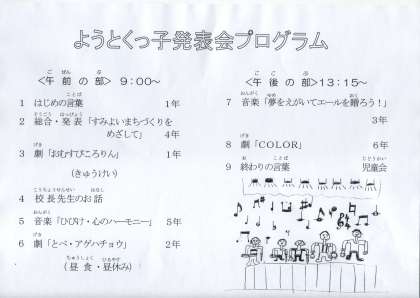 ようとくっ子発表会プログラム
<午前の部> 9:00～
1 はじめの言葉 1年
2 総合・発表「すみよいまちづくりを
めざして」 4年
3 劇「おむすびころりん」 1年
(きゅうけい)
4 校長先生のお話
5 音楽「ひびけ・心のハーモニー」 5年
6 劇「とべ・アゲハチョウ」 2年
(昼食・昼休み)
<午後の部> 13:15～
7 音楽「夢をえがいてエールを贈ろう!」
3年
8 劇「COLOR」 6年
9 終わりの言葉 児童会